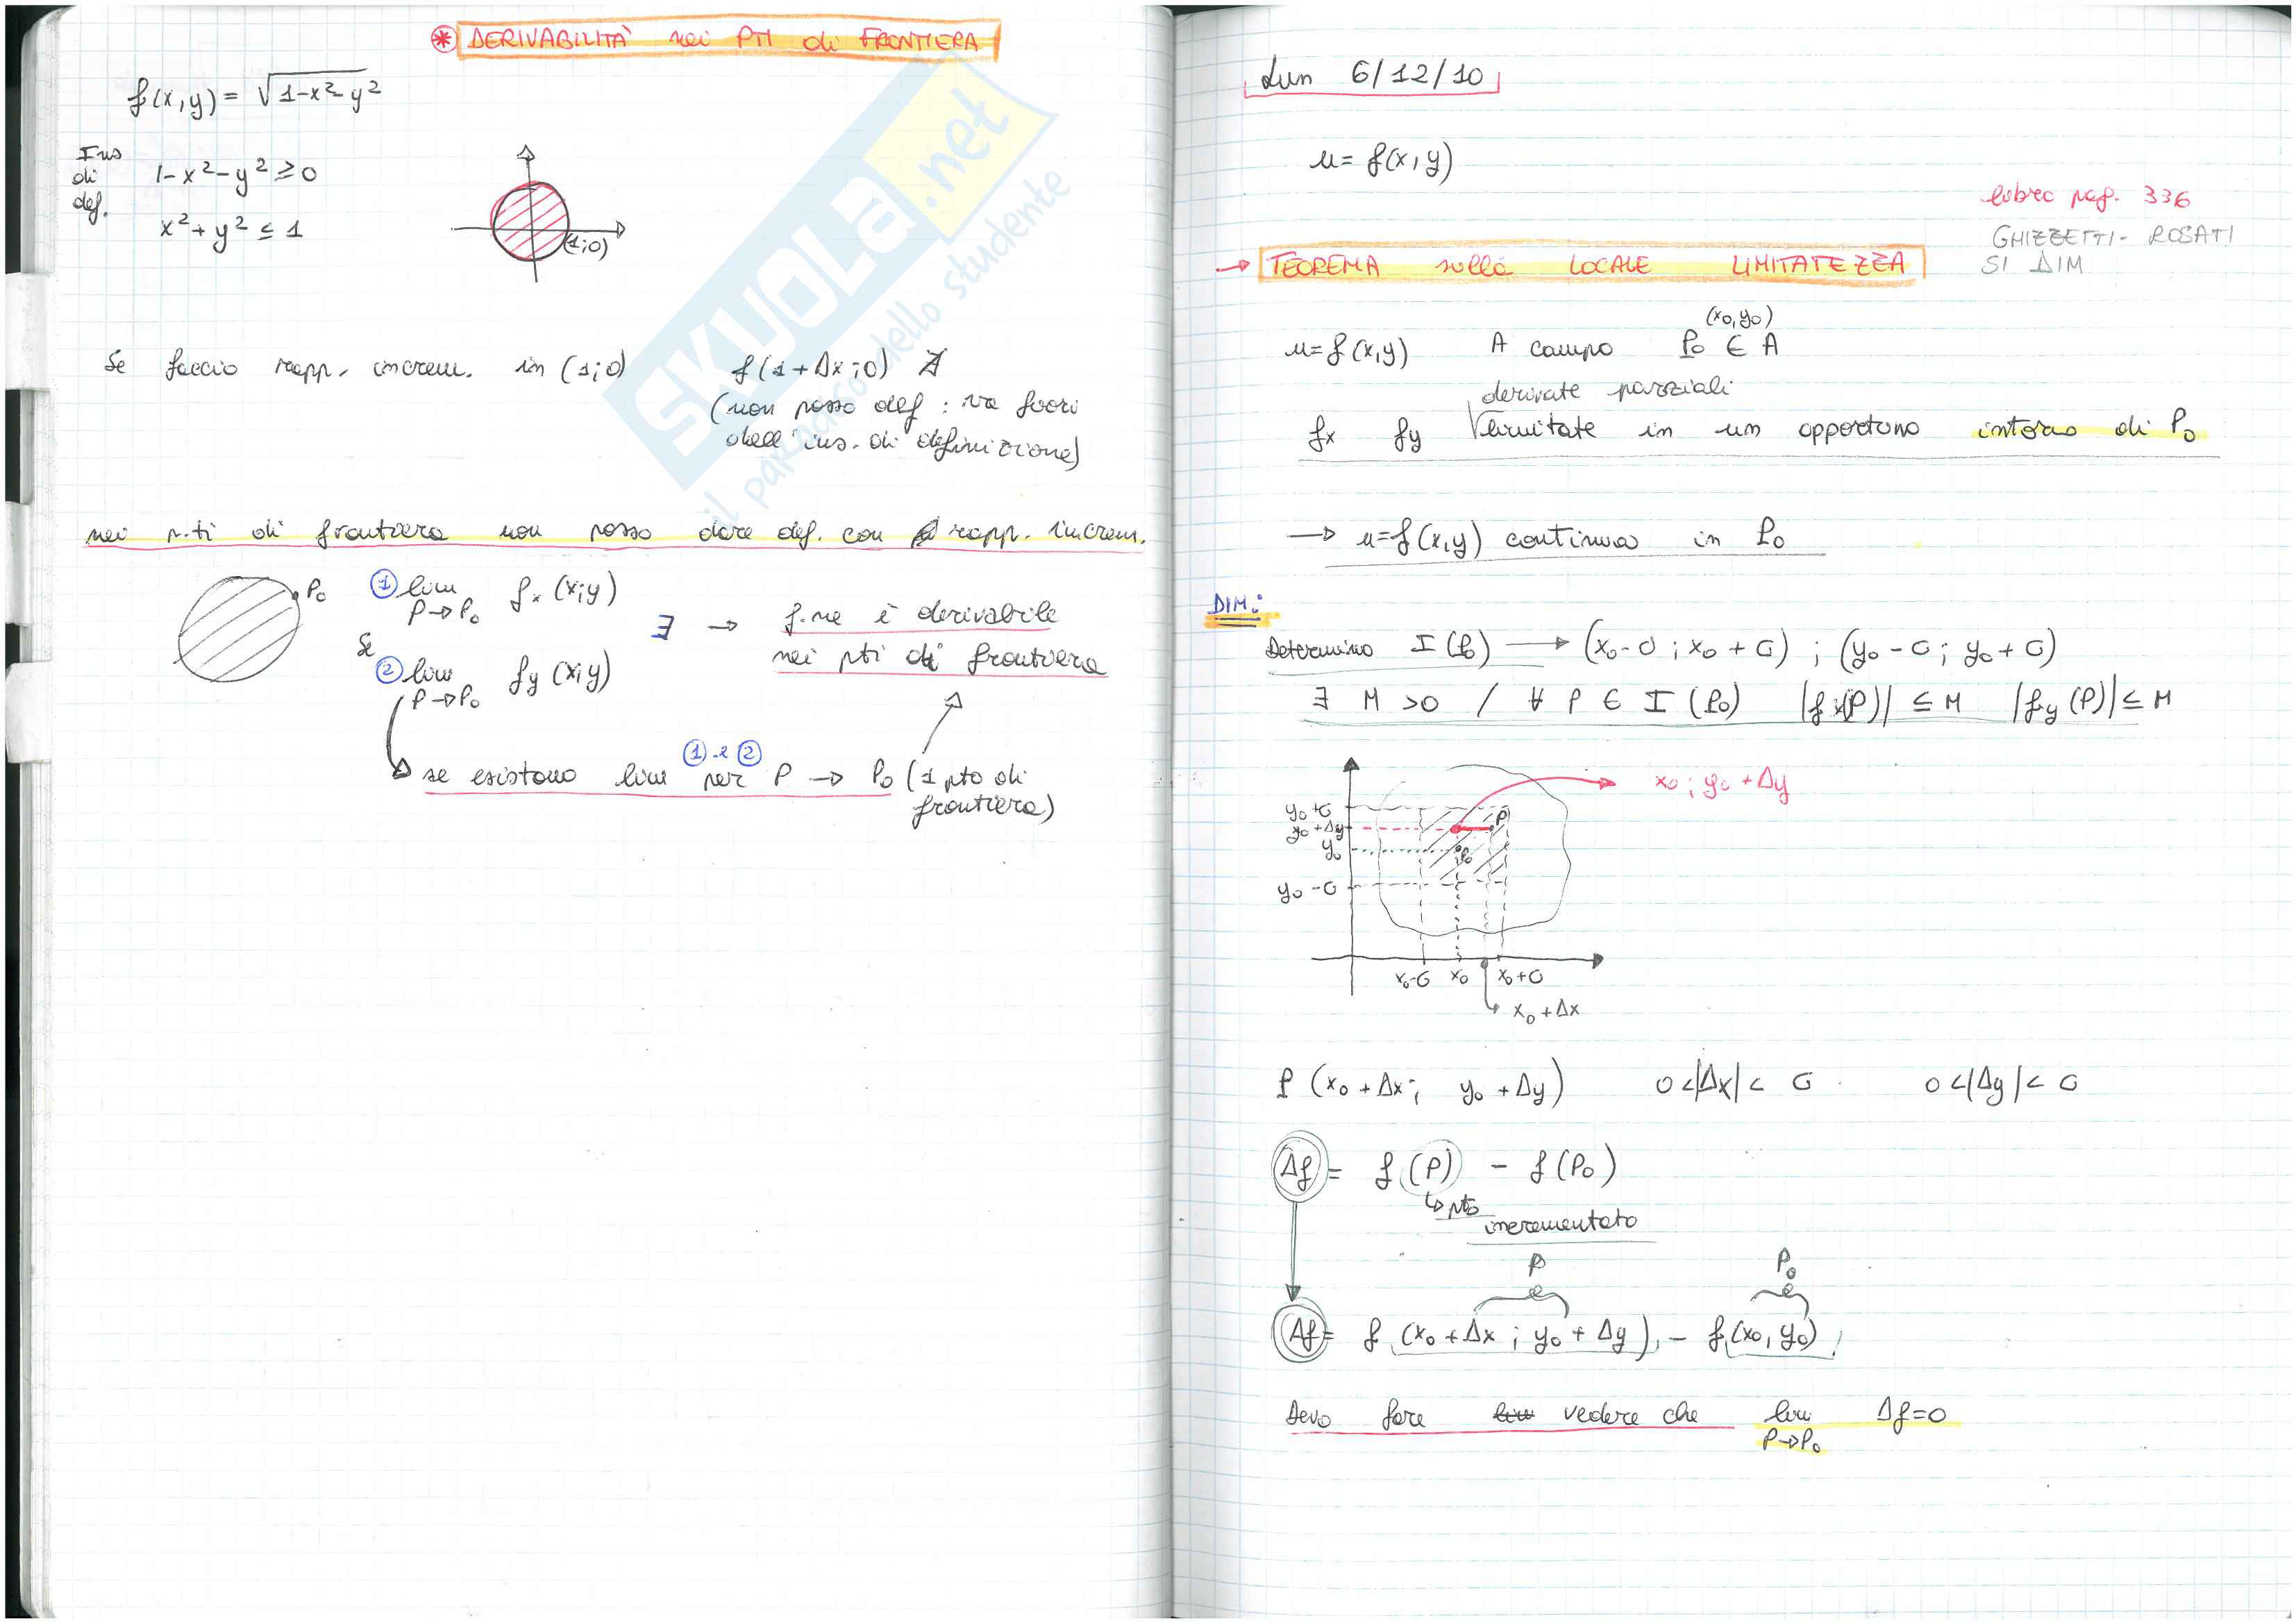 * DERIVABILITÀ nei PTI di FRONTIERA
f(x,y) = √1-x²-y²
Ins di def.
1-x²-y² ≥ 0
x²+y² ≤ 1
(1;0)
Se faccio rapp. increm. in (1;0) f(1+Δx;0) ∄
(non posso def : va fuori
dell'ins. di definizione)
nei p.ti di frontiera non posso dare def. con rapp. increm.
P₀
Se
① lim P→P₀ fx (x;y)
② lim P→P₀ fy (x;y)
∃ → f.ne è derivabile
nei pti di frontiera
① e ②
se esistono lim per P → P₀ (1 pto di
frontiera)
SKUOLA.net
il paradiso dello studente
Lun 6/12/10
u= f(x,y)
libro pag. 336
GHIZZETTI-ROSATI
SI DIM
→ TEOREMA sulla LOCALE LIMITATEZZA
(x₀,y₀)
u=f(x,y) A campo P₀ ∈ A
derivate parziali
fx fy limitate in un opportuno intorno di P₀
→ u=f(x,y) continua in P₀
DIM:
Determino I(P₀) → (x₀-σ ; x₀+σ) ; (y₀-σ ; y₀+σ)
∃ M >0 / ∀ P ∈ I (P₀) |fx(P)| ≤ M |fy(P)| ≤ M
x₀ ; y₀+Δy
y₀+σ
y₀+Δy
y₀
y₀-σ
P
P₀
x₀-σ x₀ x₀+σ
x₀+Δx
P (x₀+Δx ; y₀+Δy) 0<|Δx|< σ 0<|Δy|< σ
Δf = f(P) - f(P₀)
↳ pto
incrementato
P P₀
Δf= f (x₀+Δx ; y₀+Δy) - f(x₀,y₀)
Devo fare vedere che lim Δf=0
P→P₀